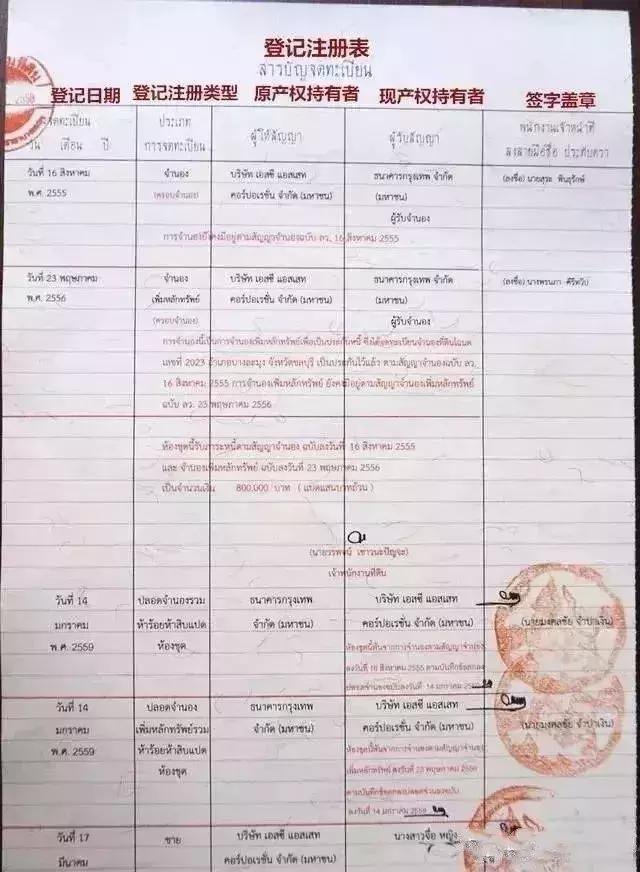 登记注册表
สารบัญจดทะเบียน
登记日期 登记注册类型 原产权持有者 现产权持有者 签字盖章
จดทะเบียน ประเภท ผู้ให้สัญญา ผู้รับสัญญา พนักงานเจ้าหน้าที่
วัน เดือน ปี การจดทะเบียน ลงลายมือชื่อ ประทับตรา
วันที่ 16 สิงหาคม จำนอง บริษัท เอสซี แอสเสท ธนาคารกรุงเทพ จำกัด (ลงชื่อ) นายสุระ
พ.ศ. 2555 (ครอบจำนอง) คอร์ปอเรชั่น จำกัด (มหาชน) (มหาชน)
ผู้รับจำนอง
การจำนองยังคงมีอยู่ตามสัญญาจำนองฉบับ ลว. 16 สิงหาคม 2555
วันที่ 23 พฤษภาคม จำนอง บริษัท เอสซี แอสเสท ธนาคารกรุงเทพ จำกัด (ลงชื่อ) นางพรนภา
พ.ศ. 2556 เพิ่มหลักทรัพย์ คอร์ปอเรชั่น จำกัด (มหาชน) (มหาชน)
(ครอบจำนอง) ผู้รับจำนอง
การจำนองนี้เป็นการจำนองเพิ่มหลักทรัพย์เพื่อเป็นประกันหนี้ ซึ่งได้จดทะเบียนจำนองที่ดินโฉนด
เลขที่ 2023 อำเภอบางละมุง จังหวัดชลบุรี เป็นประกันไว้แล้ว ตามสัญญาจำนองฉบับ ลว.
16 สิงหาคม 2555 การจำนองเพิ่มหลักทรัพย์ ยังคงมีอยู่ตามสัญญาจำนองเพิ่มหลักทรัพย์
ฉบับ ลว. 23 พฤษภาคม 2556
ห้องชุดนี้รับภาระหนี้ตามสัญญาจำนอง ฉบับลงวันที่ 16 สิงหาคม 2555
และ จำนองเพิ่มหลักทรัพย์ ฉบับลงวันที่ 23 พฤษภาคม 2556
เป็นจำนวนเงิน 800,000 บาท (แปดแสนบาทถ้วน)
(นายวรพจน์
เจ้าพนักงานที่ดิน
วันที่ 14 ปลอดจำนองรวม ธนาคารกรุงเทพ บริษัท เอสซี แอสเสท
มกราคม ห้าร้อยห้าสิบแปด จำกัด (มหาชน) คอร์ปอเรชั่น จำกัด (มหาชน) (นายมงคลชัย จำปาเงิน)
พ.ศ. 2559 ห้องชุด ห้องชุดนี้พ้นจากการจำนองตามสัญญาจำนอง
ลงวันที่ 16 สิงหาคม 2555 ตามบันทึกข้อตกลง
ปลอดจำนองฉบับลงวันที่ 14 มกราคม 2559
วันที่ 14 ปลอดจำนอง ธนาคารกรุงเทพ บริษัท เอสซี แอสเสท
มกราคม เพิ่มหลักทรัพย์รวม จำกัด (มหาชน) คอร์ปอเรชั่น จำกัด (มหาชน) (นายมงคลชัย จำปาเงิน)
พ.ศ. 2559 ห้าร้อยห้าสิบแปด ห้องชุดนี้พ้นจากการจำนองตามสัญญาจำนอง
ห้องชุด เพิ่มหลักทรัพย์ ลงวันที่ 23 พฤษภาคม 2556
ตามบันทึกข้อตกลงปลอดจำนองฉบับ
ลงวันที่ 14 มกราคม 2559
วันที่ 17 ขาย บริษัท เอสซี แอสเสท นางสาวจื่อ หญิง
มีนาคม คอร์ปอเรชั่น จำกัด (มหาชน)